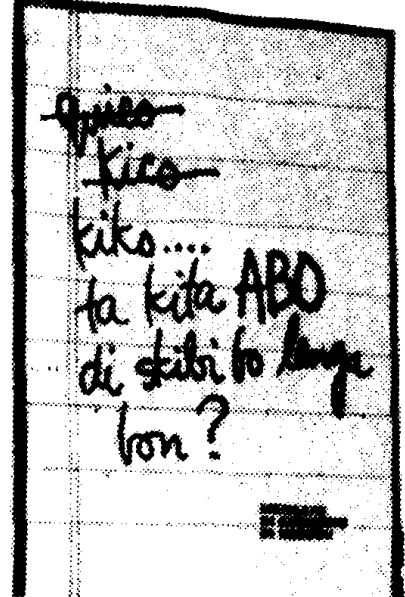 quico
kico
kiko....
ta kita ABO
di skibi bo lenga
bon?